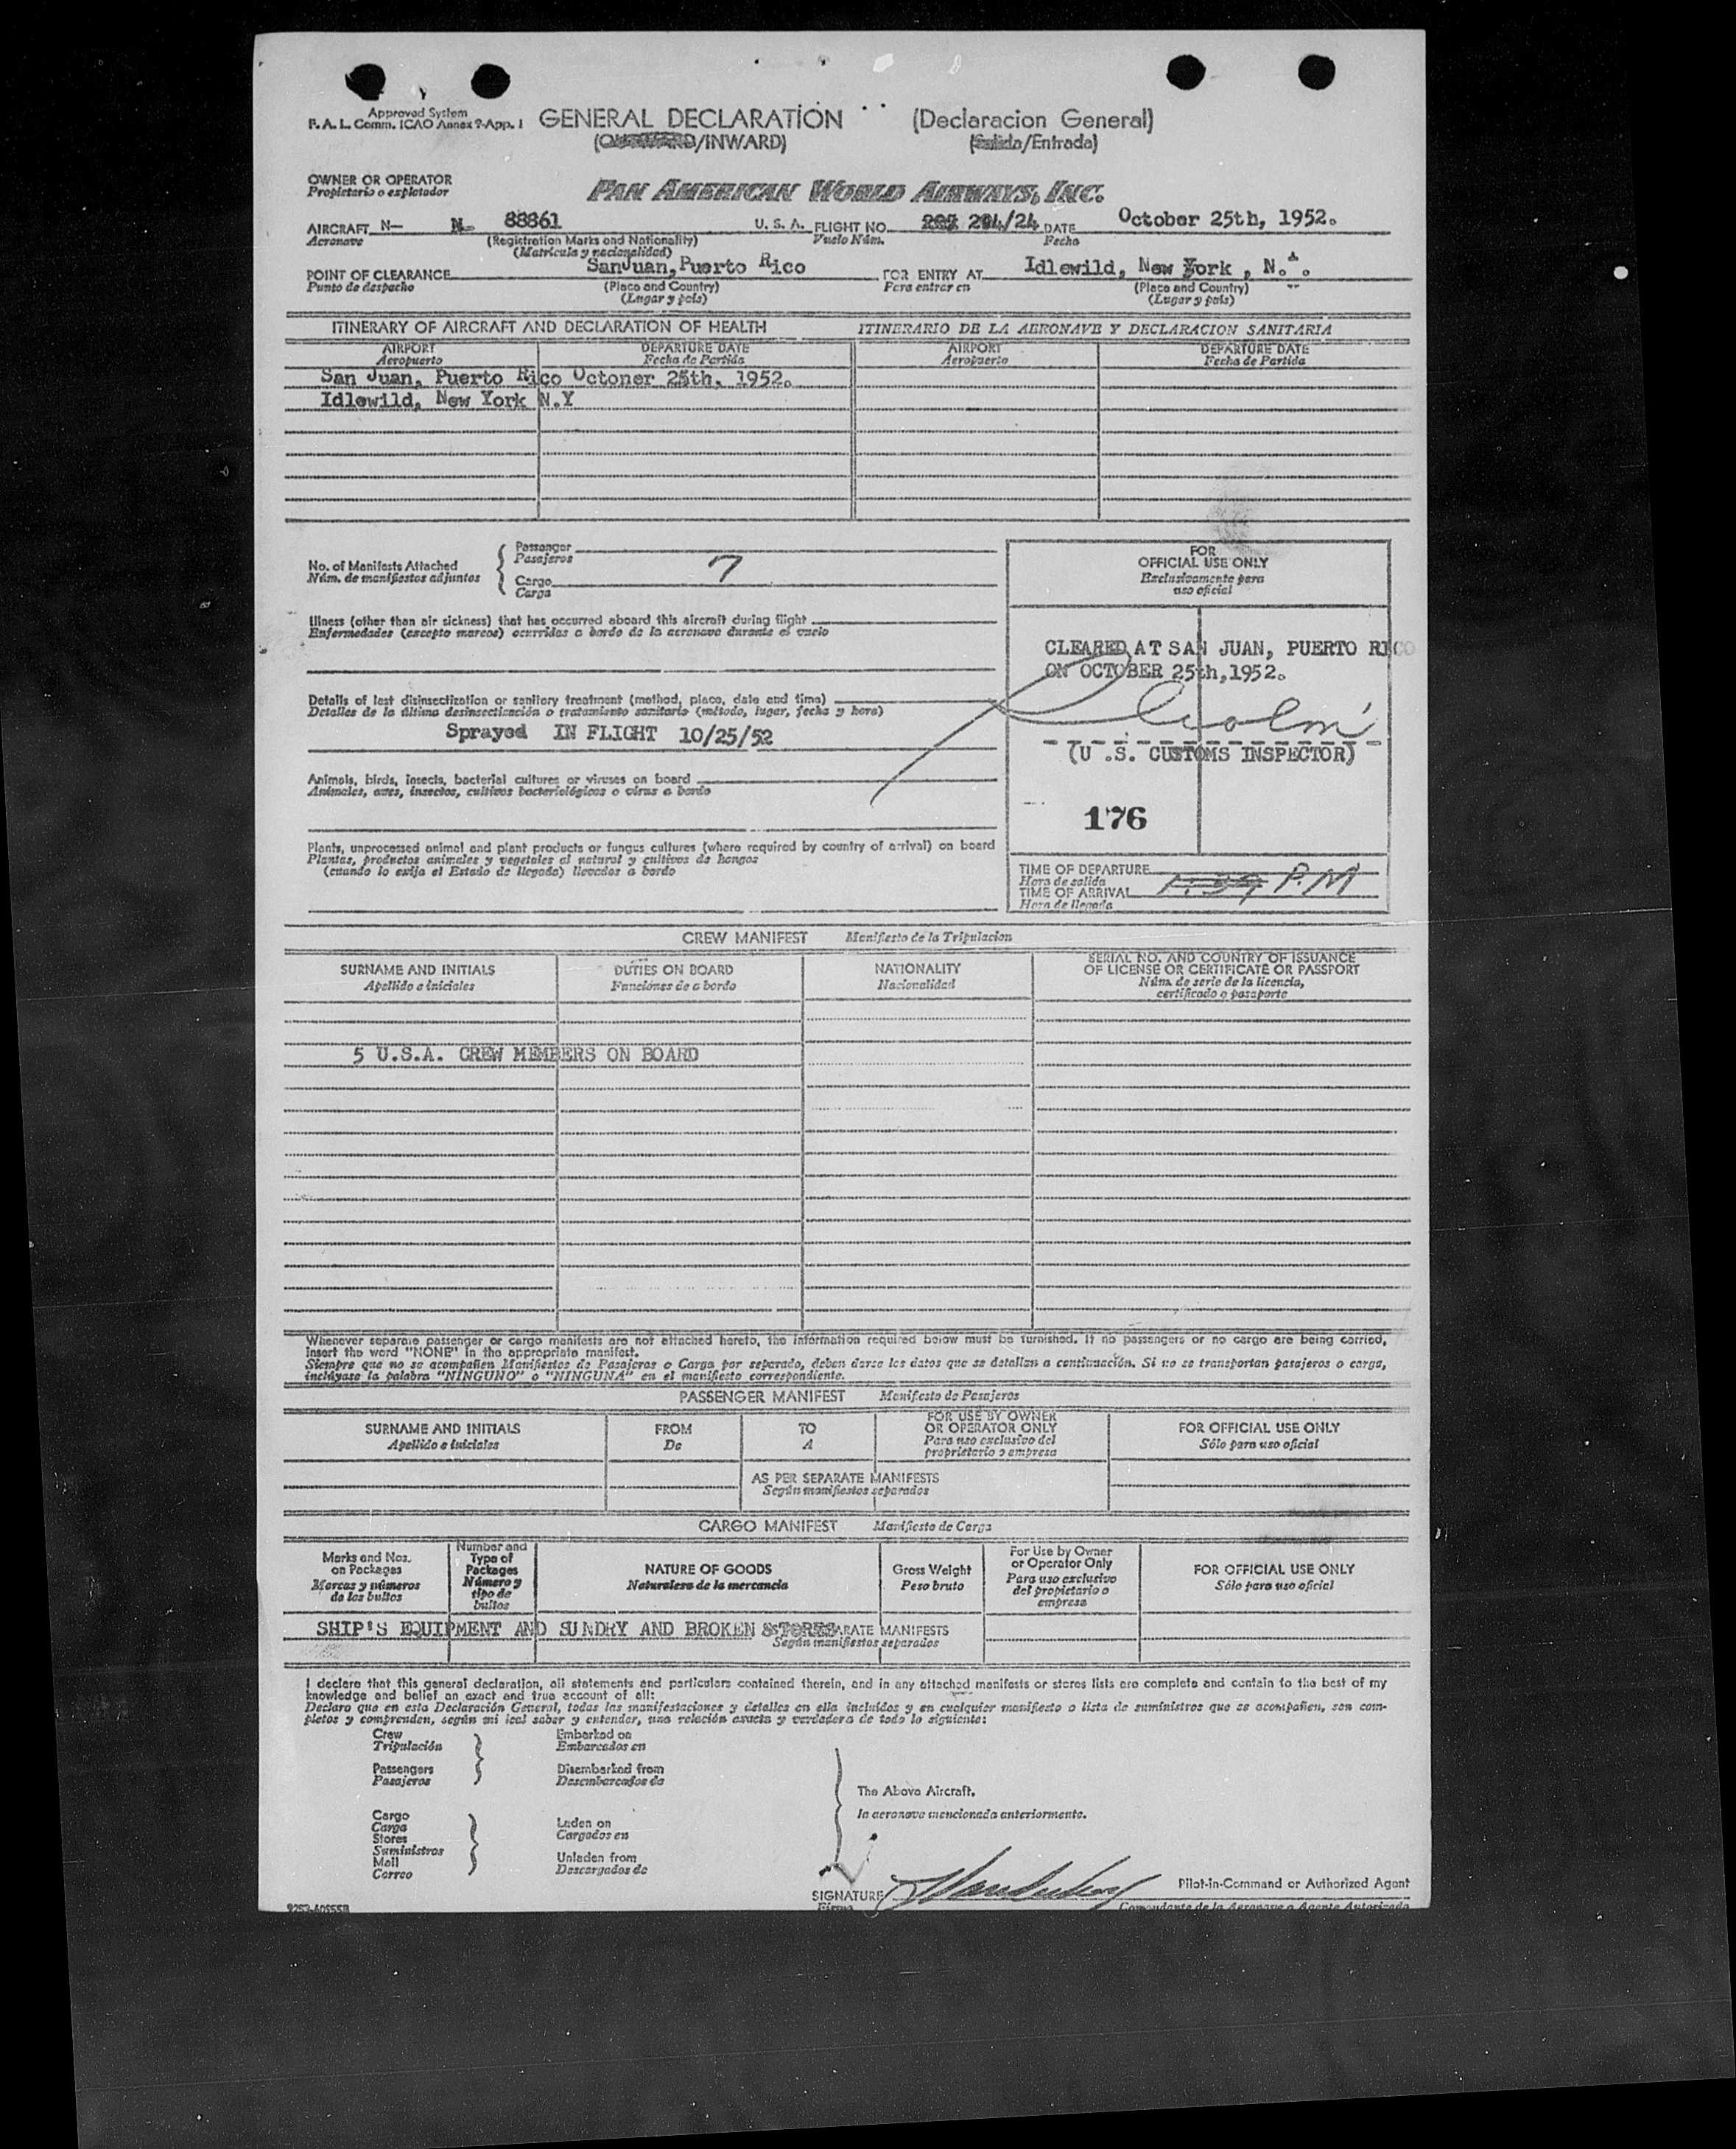 Approved System
F.A.L. Comm. ICAO Annex 9-App. 1
GENERAL DECLARATION (Declaracion General)
(OUTWARD/INWARD) (Salida/Entrada)
OWNER OR OPERATOR
Propietario o explotador
PAN AMERICAN WORLD AIRWAYS, INC.
AIRCRAFT N- N- 88861 U. S. A. FLIGHT NO. 204/24 DATE October 25th, 1952.
Aeronave (Registration Marks and Nationality) Vuelo Núm. Fecha
(Matrícula y nacionalidad)
POINT OF CLEARANCE SanJuan, Puerto Rico FOR ENTRY AT Idlewild, New York , N.Y.
Punto de despacho (Place and Country) Para entrar en (Place and Country)
(Lugar y país) (Lugar y país)
ITINERARY OF AIRCRAFT AND DECLARATION OF HEALTH ITINERARIO DE LA AERONAVE Y DECLARACION SANITARIA
AIRPORT DEPARTURE DATE AIRPORT DEPARTURE DATE
Aeropuerto Fecha de Partida Aeropuerto Fecha de Partida
San Juan, Puerto Rico Octoner 25th, 1952.
Idlewild, New York N.Y
No. of Manifests Attached
Núm. de manifiestos adjuntos
Passenger
Pasajeros
7
Cargo
Carga
Illness (other than air sickness) that has occurred aboard this aircraft during flight
Enfermedades (excepto mareos) ocurridas a bordo de la aeronave durante el vuelo
Details of last disinsectization or sanitary treatment (method, place, date and time)
Detalles de la última desinsectización o tratamiento sanitario (método, lugar, fecha y hora)
Sprayed IN FLIGHT 10/25/52
Animals, birds, insects, bacterial cultures or viruses on board
Animales, aves, insectos, cultivos bacteriológicos o virus a bordo
Plants, unprocessed animal and plant products or fungus cultures (where required by country of arrival) on board
Plantas, productos animales y vegetales al natural y cultivos de hongos
(cuando lo exija el Estado de llegada) llevados a bordo
FOR
OFFICIAL USE ONLY
Exclusivamente para
uso oficial
CLEARED AT SAN JUAN, PUERTO RICO
ON OCTOBER 25th,1952.
(U .S. CUSTOMS INSPECTOR)
176
TIME OF DEPARTURE
Hora de salida
1:39 P.M
TIME OF ARRIVAL
Hora de llegada
CREW MANIFEST Manifiesto de la Tripulacion
SURNAME AND INITIALS DUTIES ON BOARD NATIONALITY SERIAL NO. AND COUNTRY OF ISSUANCE
Apellido e iniciales Funciónes de a bordo Nacionalidad OF LICENSE OR CERTIFICATE OR PASSPORT
Núm. de serie de la licencia,
certificado o pasaporte
5 U.S.A. CREW MEMBERS ON BOARD
Whenever separate passenger or cargo manifests are not attached hereto, the information required below must be furnished. If no passengers or no cargo are being carried,
insert the word "NONE" in the appropriate manifest.
Siempre que no se acompañen Manifiestos de Pasajeros o Carga por separado, deben darse los datos que se detallan a continuación. Si no se transportan pasajeros o carga,
inclúyase la palabra "NINGUNO" o "NINGUNA" en el manifiesto correspondiente.
PASSENGER MANIFEST Manifiesto de Pasajeros
SURNAME AND INITIALS FROM TO FOR USE BY OWNER OR OPERATOR ONLY FOR OFFICIAL USE ONLY
Apellido e iniciales De A Para uso exclusivo del propietario o empresa Sólo para uso oficial
AS PER SEPARATE MANIFESTS
Según manifiestos separados
CARGO MANIFEST Manifiesto de Carga
Marks and Nos. on Packages Number and Type of Packages NATURE OF GOODS Gross Weight For Use by Owner or Operator Only FOR OFFICIAL USE ONLY
Marcas y números de los bultos Número y tipo de bultos Naturaleza de la mercancia Peso bruto Para uso exclusivo del propietario o empresa Sólo para uso oficial
SHIP'S EQUIPMENT AND SUNDRY AND BROKEN STORES SEPARATE MANIFESTS
Según manifiestos separados
I declare that this general declaration, all statements and particulars contained therein, and in any attached manifests or stores lists are complete and contain to the best of my
knowledge and belief an exact and true account of all:
Declaro que en esta Declaración General, todas las manifestaciones y detalles en ella incluidos y en cualquier manifiesto o lista de suministros que se acompañen, son com-
pletos y comprenden, según mi leal saber y entender, una relación exacta y verdadera de todo lo siguiente:
Crew Embarked on
Tripulación Embarcados en
Passengers Disembarked from
Pasajeros Desembarcados de
The Above Aircraft.
la aeronave mencionada anteriormente.
Cargo
Carga Laden on
Stores Cargados en
Suministros
Mail Unladen from
Correo Descargados de
SIGNATURE Pilot-in-Command or Authorized Agent
Firma Comandante de la Aeronave o Agente Autorizado